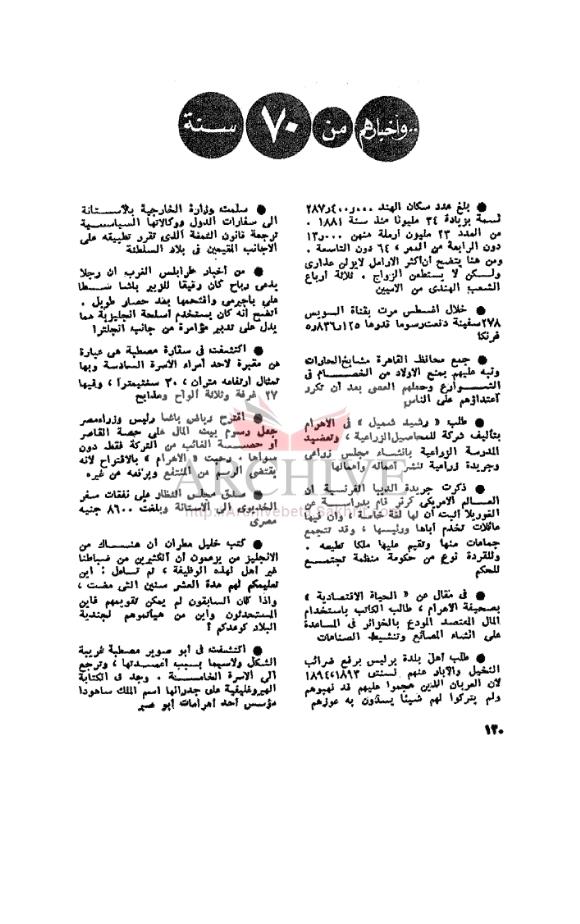 ..وأخبارهم من ٧٠ سنة
● بلغ عدد سكان الهند ٢٨٧٫٤٠٠٫٠٠٠
نسمة بزيادة ٣٤ مليونا منذ سنة ١٨٨١
من العدد ٢٣ مليون أرملة منهن ١٣٫٠٠٠
دون الرابعة من العمر ، ٦٤ دون التاسعة .
ومن هنا يتضح أن أكثر الأرامل لايزلن عذارى
ولكن لا يستطعن الزواج . ثلاثة أرباع
الشعب الهندى من الأميين
● خلال أغسطس مرت بقناة السويس
٢٧٨ سفينة دفعت رسوما قدرها ٥٫٨٣٦٫١٢٥
فرنكا
● جمع محافظ القاهرة مشايخ الحارات
ونبه عليهم بمنع الأولاد من الخصام فى
الشوارع وحملهم العصى بعد أن تكرر
اعتداؤهم على الناس
● طلب « رشيد شميل » فى الأهرام
بتأليف شركة للمحاصيل الزراعية ، وتعضيد
المدرسة الزراعية بانشاء مجلس زراعى
وجريدة زراعية لنشر أعماله وأعمالها
● ذكرت جريدة الديبا الفرنسية أن
العالم الأمريكى كرنر قام بدراسة عن
الغوريلا أثبت أن لها لغة خاصة ، وأن فيها
عائلات تخدم أباها ورئيسها ، وقد تتجمع
جماعات منها وتقيم عليها ملكا تطيعه .
وللقردة نوع من حكومة منظمة تجتمع
للحكم
● فى مقال عن « الحياة الاقتصادية »
بصحيفة الأهرام ، طالب الكاتب باستخدام
المال المقتصد المودع بالخزائن فى المساعدة
على انشاء المصانع وتنشيط الصناعات
● طلب أهل بلدة برليس برفع ضرائب
النخيل والآبار عنهم لسنتى ١٨٩٣،١٨٩٤
لأن العربان الذين هجموا عليهم قد نهبوهم
ولم يتركوا لهم شيئا يسدون به عوزهم
● سلمت وزارة الخارجية بالآستانة
الى سفارات الدول ووكالاتها السياسية
ترجمة قانون التمغة الذى تقرر تطبيقه على
الأجانب المقيمين فى بلاد السلطنة
● من أخبار طرابلس الغرب أن رجلا
يدعى رباح كان رفيقا للزبير باشا سطا
على باجيرمى وافتتحها بعد حصار طويل .
اتضح أنه كان يستخدم أسلحة انجليزية مما
يدل على تدبير مؤامرة من جانب انجلترا
● اكتشفت فى سقارة مصطبة هى عبارة
عن مقبرة لأحد أمراء الأسرة السادسة وبها
تمثال ارتفاعه متران ، ٣٠ سنتيمترا ، وفيها
٢٧ غرفة وثلاثة ألواح ومذابح
● اقترح رياض باشا رئيس وزراء مصر
جعل رسوم بيت المال على حصة القاصر
أو حصة الغائب من التركة فقط دون
سواها . رحبت « الأهرام » بالاقتراح لأنه
يقتضى الرسم من المنتفع ويرفعه عن غيره
● صدق مجلس النظار على نفقات سفر
الخديوى الى الآستانة وبلغت ٨٦٠٠ جنيه
مصرى
● كتب خليل مطران أن هناك من
الانجليز من يزعمون أن الكثيرين من ضباطنا
غير أهل لهذه الوظيفة ، ثم تساءل : أين
تعليمكم لهم هذه العشر سنين التى مضت ،
وإذا كان السابقون لم يمكن تقويمهم فأين
المستجدون وأين من هيأتموهم لجندية
البلاد كوعدكم ؟
● اكتشفت فى أبو صوير مصطبة غريبة
الشكل ولاسيما بسبب أعمدتها ، وترجع
الى الأسرة الخامسة . وجد فى الكتابة
الهيروغليفية على جدرانها اسم الملك ساهودا
مؤسس أحد أهرامات أبو صير
١٢٠
ARCHIVE